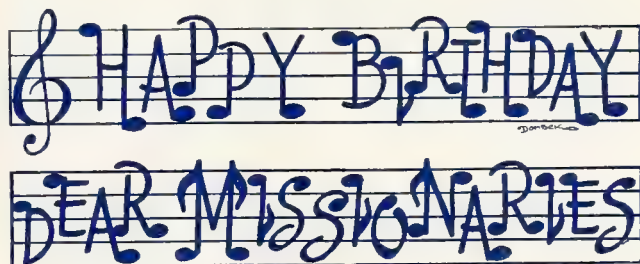 HAPPY BIRTHDAY
Dombek
DEAR MISSIONARIES